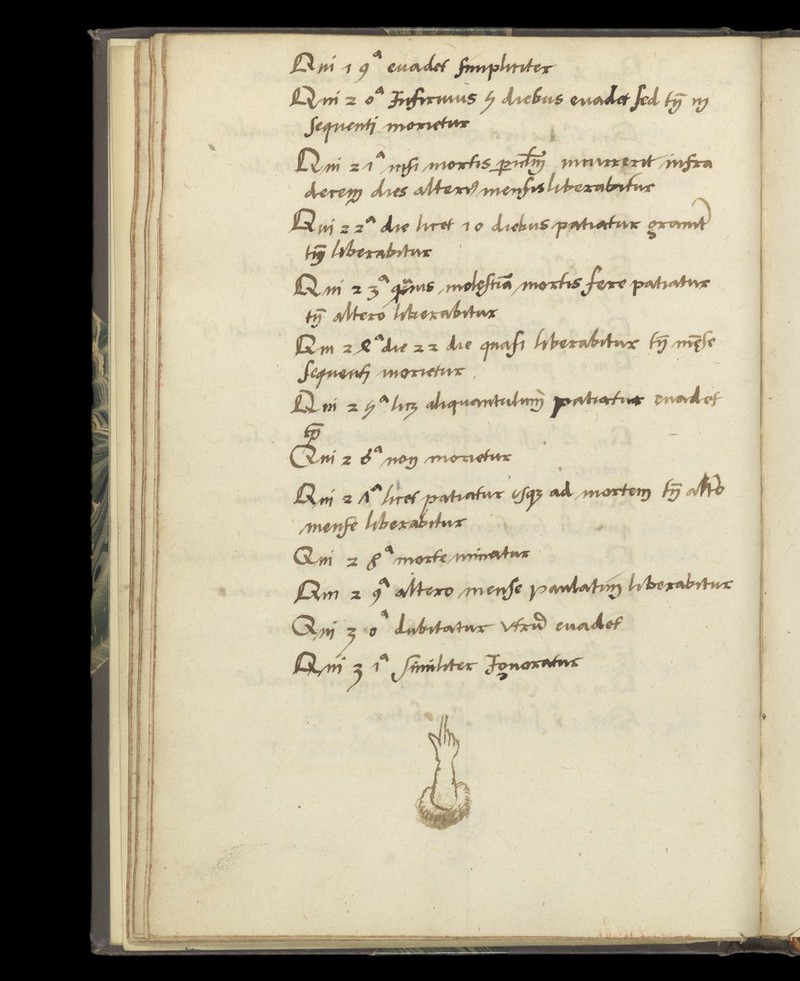 Qui 19ᵃ euadet simpliciter
Qui 20ᵃ Infirmus 5 diebus euadet sed tñ in
sequenti morietur
Qui 21ᵃ nisi mortis incurrerit infra
decem dies alteri9 mensis liberabitur
Qui 22ᵃ die licet 10 diebus patiatur grauit
tñ liberabitur
Qui 23ᵃ quãuis molestiã mortis fere patiatur
tñ altero liberabitur
Qui 24ᵃ die 22 die quasi liberabitur tñ mẽse
sequenti morietur
Qui 25ᵃ licꝫ aliquantulum patiatur euadet
tñ
Qui 26ᵃ non morietur
Qui 27ᵃ licet patiatur usqꝫ ad mortem tñ altõ
mense liberabitur
Qui 28ᵃ morte minatur
Qui 29ᵃ altero mense paulatim liberabitur
Qui 30ᵃ dubitatur vtrũ euadet
Qui 31ᵃ similiter Ignoratur